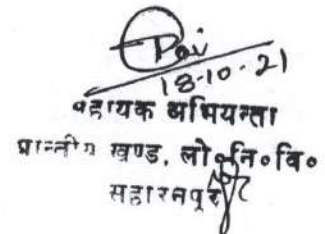 18-10-21
सहायक अभियन्ता
प्रान्तीय खण्ड, लो०नि०वि०
सहारनपुर